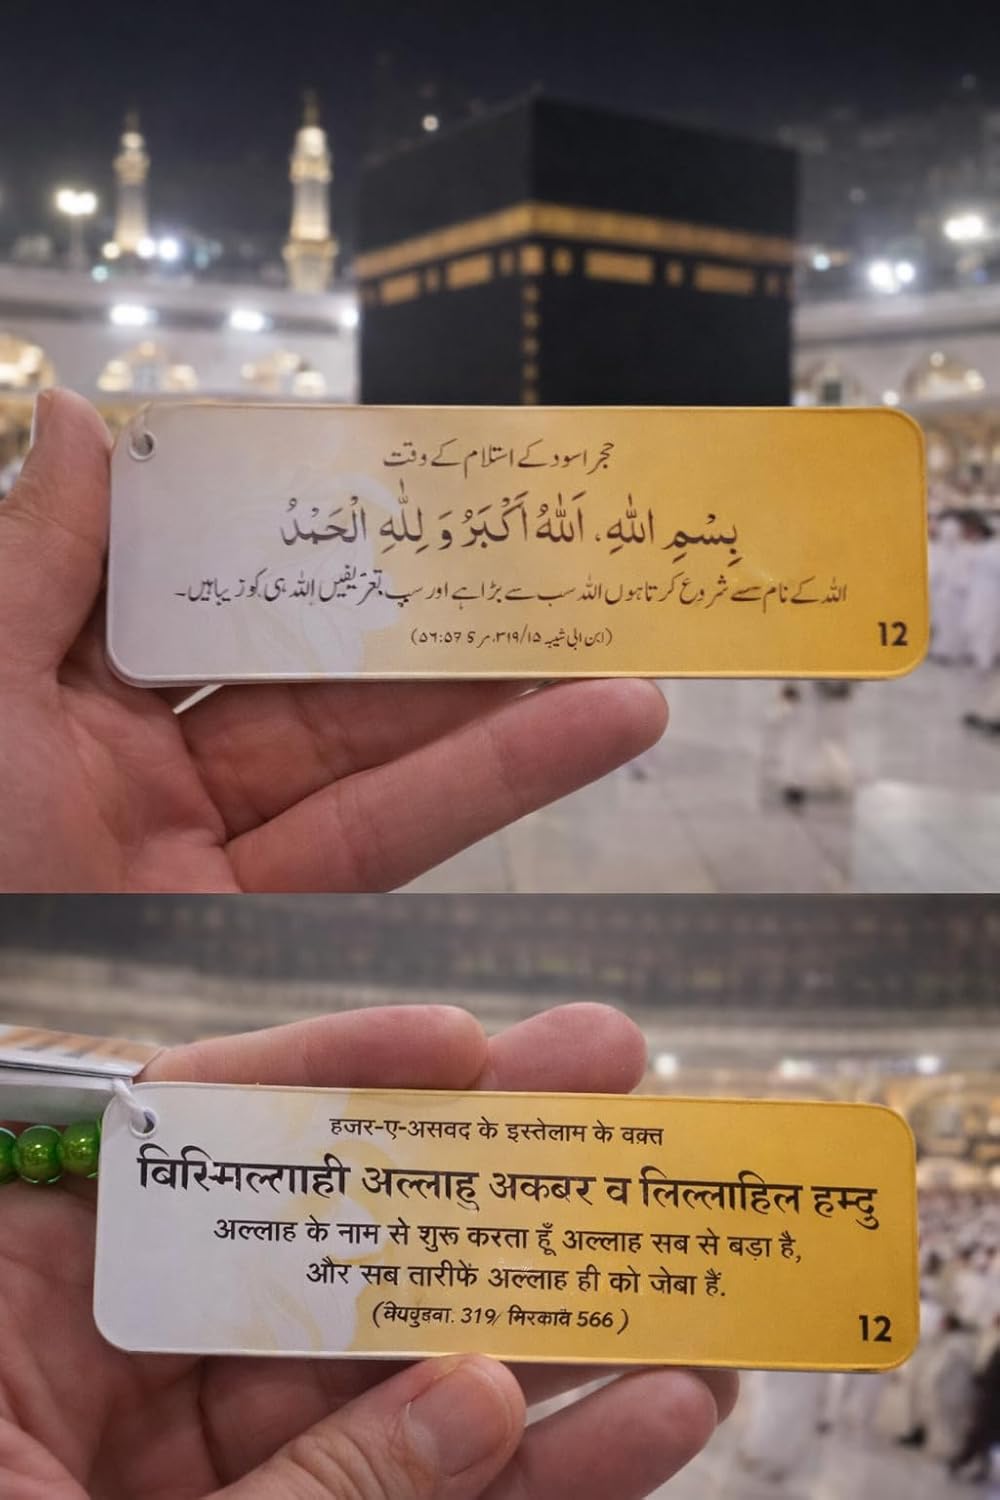 حجر اسود کے استلام کے وقت
بِسْمِ اللهِ، اَللهُ أَكْبَرُ وَ لِلّٰهِ الْحَمْدُ
اللہ کے نام سے شروع کرتا ہوں اللہ سب سے بڑا ہے اور سب تعریفیں اللہ ہی کو زیبا ہیں۔
(ابن ابی شیبہ ۳۱۹/۱۵،
12
हजर-ए-असवद के इस्तेलाम के वक़्त
बिस्मिल्लाही अल्लाहु अकबर व लिल्लाहिल हम्दु
अल्लाह के नाम से शुरू करता हूँ अल्लाह सब से बड़ा है,
और सब तारीफें अल्लाह ही को जेबा हैं.
319/ मिरकात 566 )
12